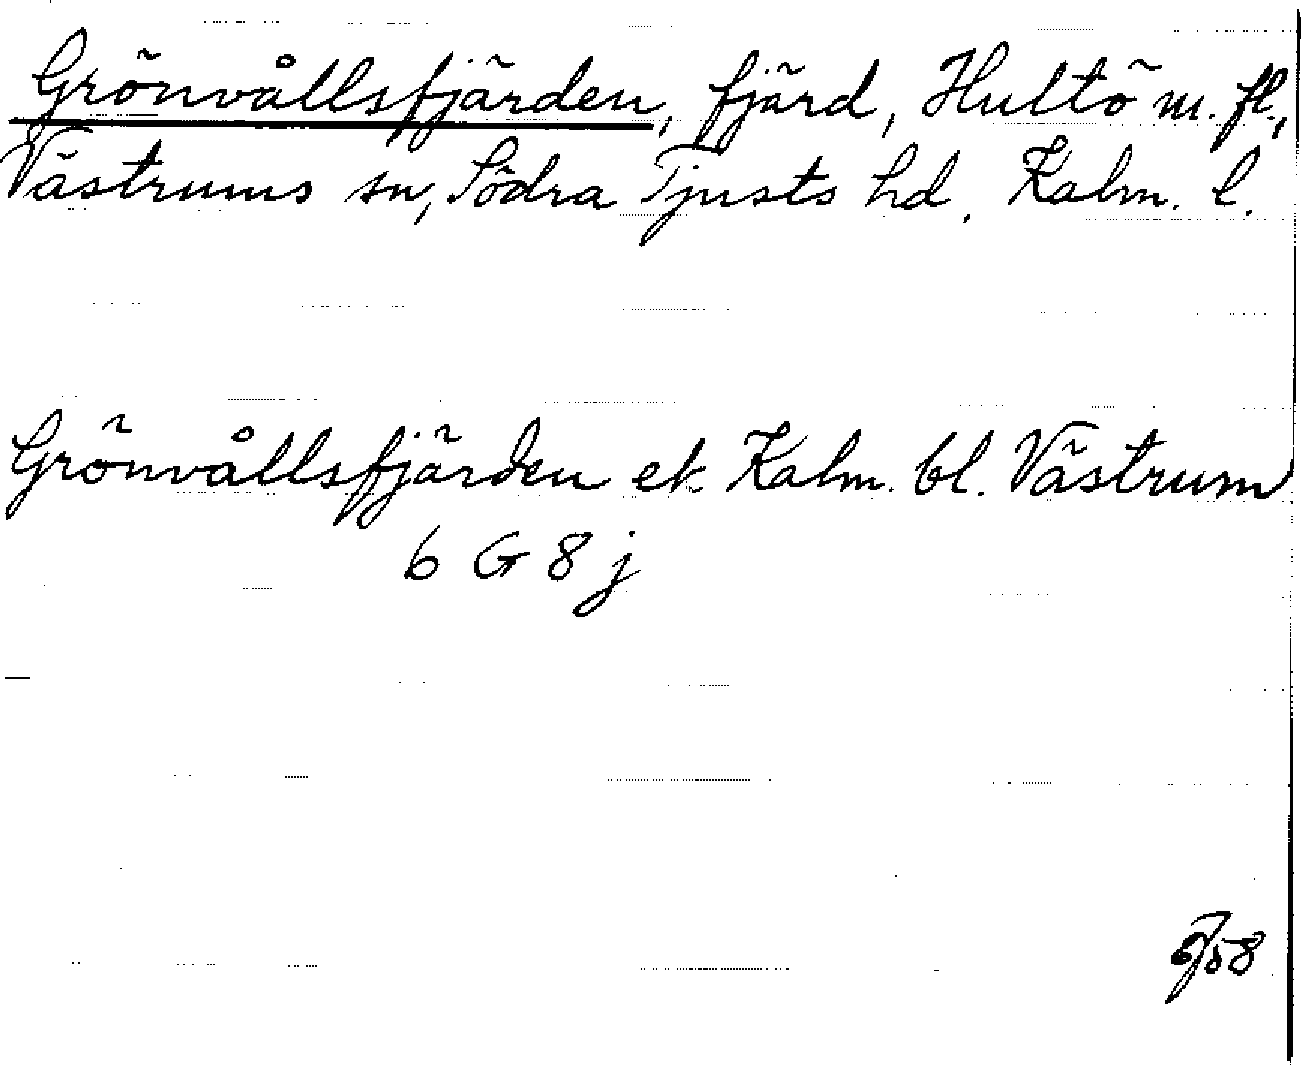 Grönvållsfjärden, fjärd, Hultö m. fl.,
Västrums sn, Södra Tjusts hd. Kalm. l.
Grönvållsfjärden ek. Kalm. bl. Västrum
6 G 8 j